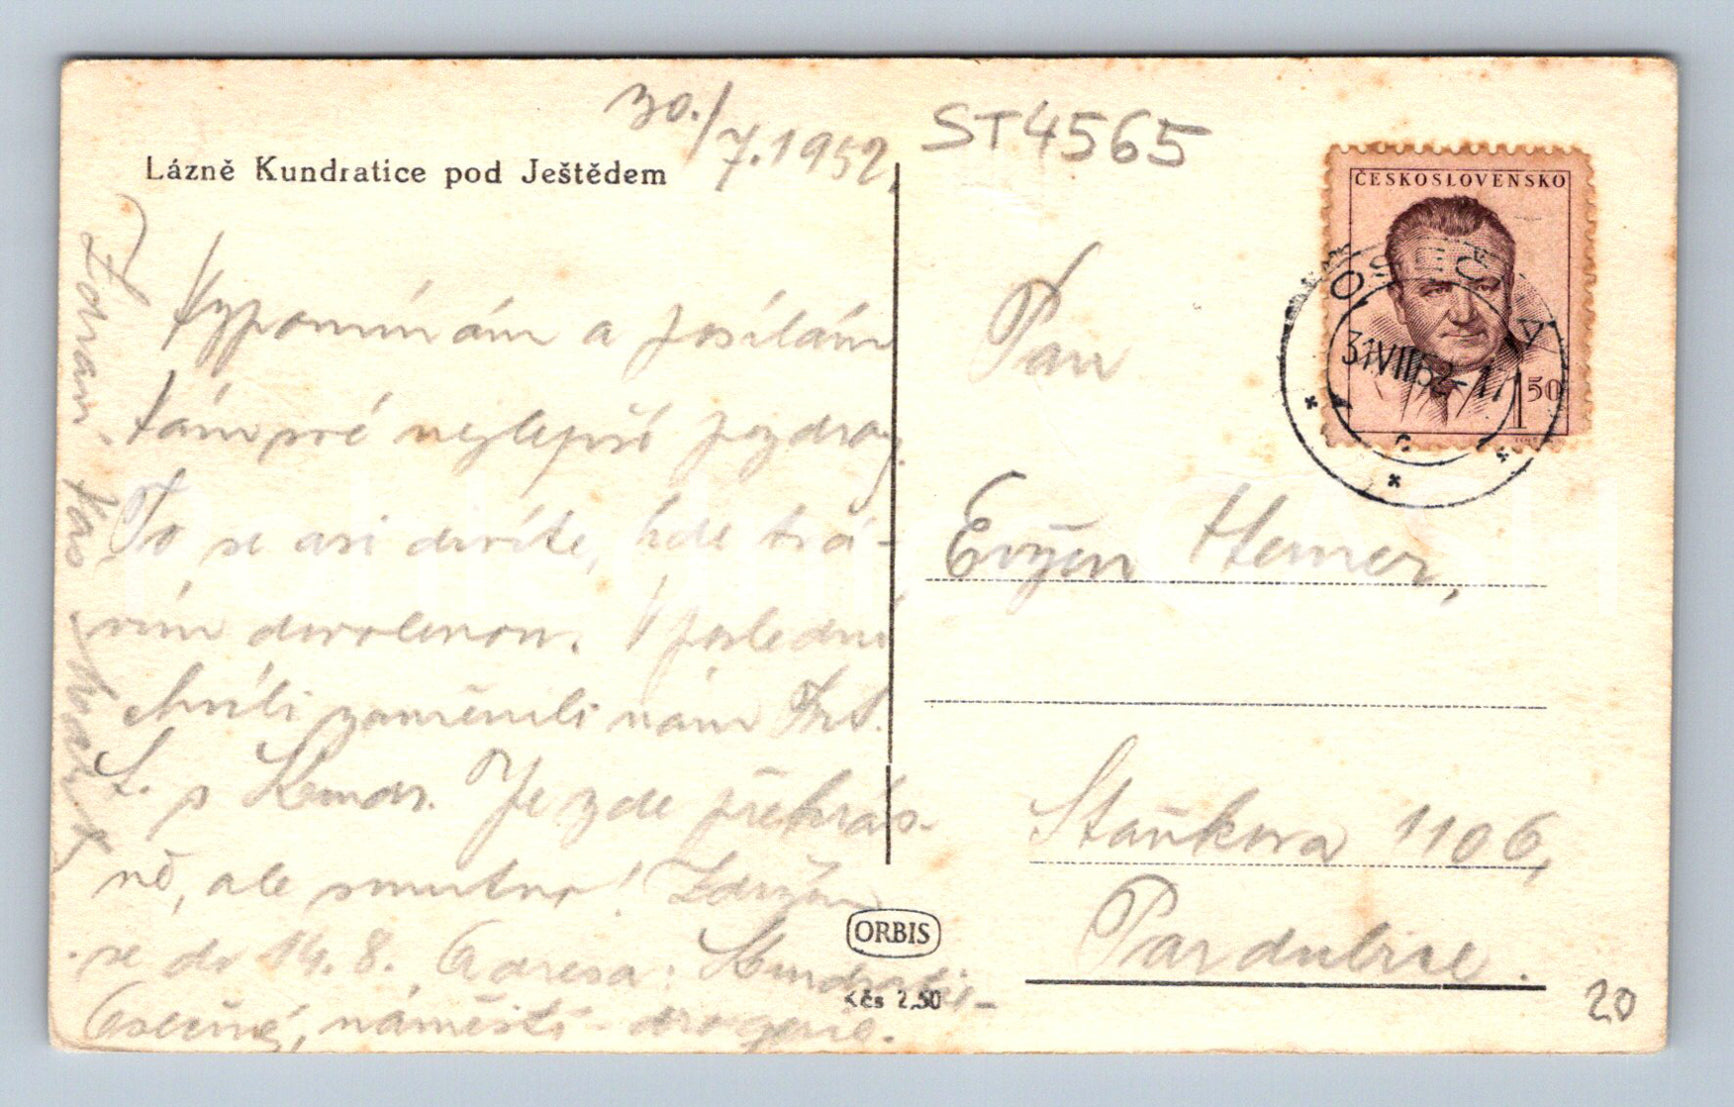 30./7.1952.
ST4565
Lázně Kundratice pod Ještědem
ČESKOSLOVENSKO
31 VII 52 - 11
1 50
Vzpomínám a posílám
Vám své nejlepší pozdravy.
To se asi divíte, kde trá-
vím dovolenou. V poslední
chvíli zaměnili nám Frt.
L. s Kundr. Je zde překrás-
ně, ale smutno! Zdržím
se do 14. 8. Adresa: Kundratice-
Osečná, náměstí - drogerie.
Zdraví Vás
Pan
Evžen Hemer,
Staňkova 1106,
Pardubice.
ORBIS
Kčs 2,50
20